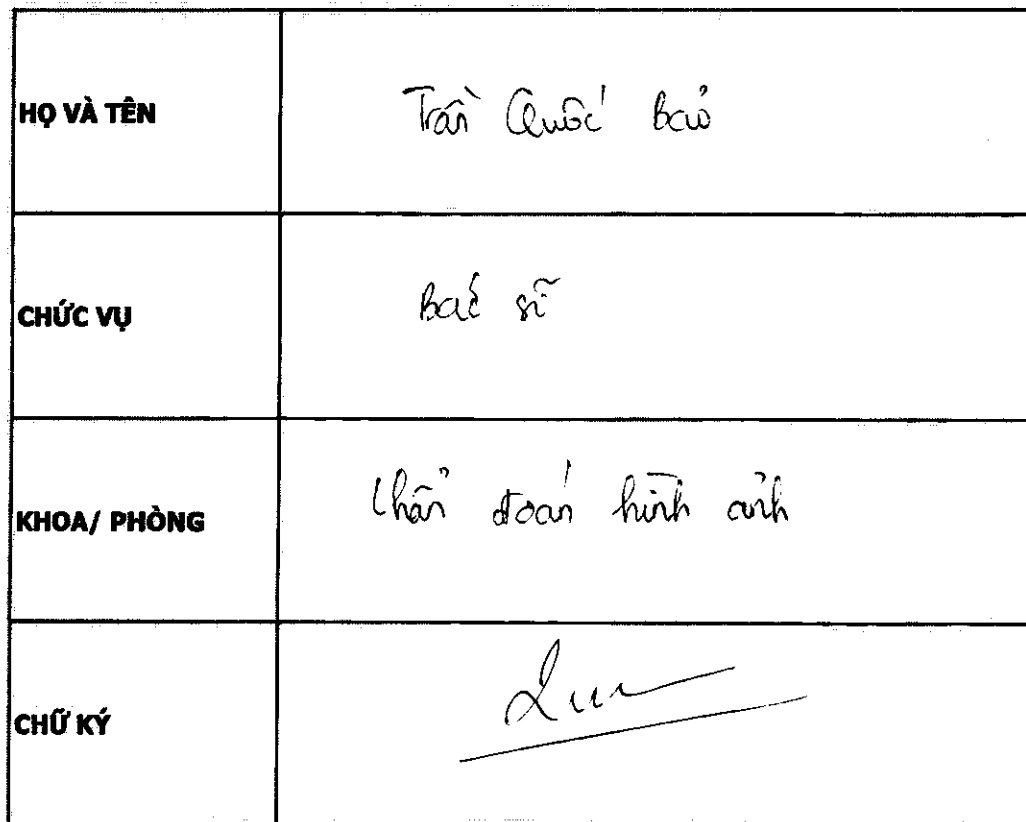 HỌ VÀ TÊN
Trần Quốc Bảo
CHỨC VỤ
Bác sĩ
KHOA/ PHÒNG
Chẩn đoán hình ảnh
CHỮ KÝ